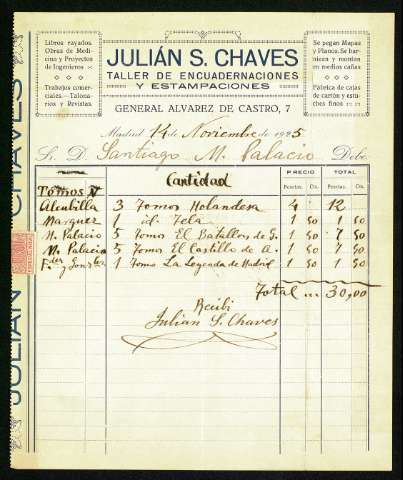 Libros rayados.
Obras de Medi-
cina y Proyectos
de Ingenieros
Trabajos comer-
ciales.—Talona-
rios y Revistas.
JULIÁN S. CHAVES
TALLER DE ENCUADERNACIONES
Y ESTAMPACIONES
GENERAL ALVAREZ DE CASTRO, 7
Se pegan Mapas
y Planos. Se bar-
nizan y montan
en medias cañas
Fábrica de cajas
de cartón y estu-
ches finos
Madrid 14 de Noviembre de 1925
Sr. D. Santiago M. Palacio Debe
Cantidad
PRECIO TOTAL
Pesetas. Cts. Pesetas. Cts.
Tomos
Alcubilla 3 Tomos Holandesa 4 12
Marquez 1 id. Tela 1 50 1 50
M. Palacio 5 Tomos El Batallon de G. 1 50 7 50
M. Palacio 5 Tomos El Castillo de A. 1 50 7 50
F. y 1 Tomo La Leyenda de Madrid 1 50 1 50
Total ... 30,00
Recibi
Julian S. Chaves
JULIÁN CHAVES